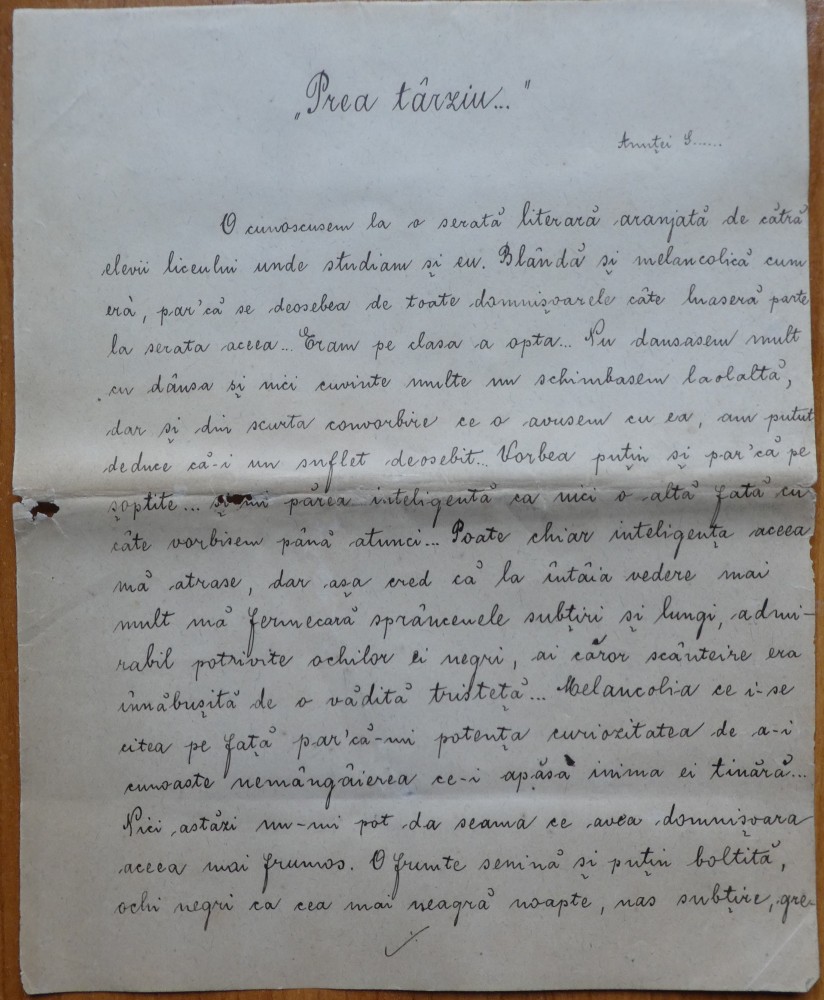 „Prea târziu..."
Anuței S......
O cunoscusem la o serată literară aranjată de cătră
elevii liceului unde studiam și eu. Blândă și melancolică cum
erà, par'că se deosebea de toate domnișoarele câte luaseră parte
la serata aceea... Eram pe clasa a opta... Nu dansasem mult
cu dânsa și nici cuvinte multe nu schimbasem laolaltă,
dar și din scurta convorbire ce o avusem cu ea, am putut
deduce că-i un suflet deosebit... Vorbea puțin și par'că pe
șoptite... și-mi părea inteligentă ca nici o altă fată cu
câte vorbisem până atunci... Poate chiar inteligența aceea
mă atrase, dar așa cred că la întâia vedere mai
mult mă fermecară sprâncenele subțiri și lungi, admi-
rabil potrivite ochilor ei negri, ai căror scânteire era
înnăbușită de o vădită tristeță... Melancolia ce i-se
citea pe față par'că-mi potența curiozitatea de a-i
cunoaste nemângâierea ce-i apăsà inima ei tinără...
Nici astăzi nu-mi pot da seama ce avea domnișoara
aceea mai frumos. O frunte senină și puțin boltită,
ochi negri ca cea mai neagră noapte, nas subțire, gre-